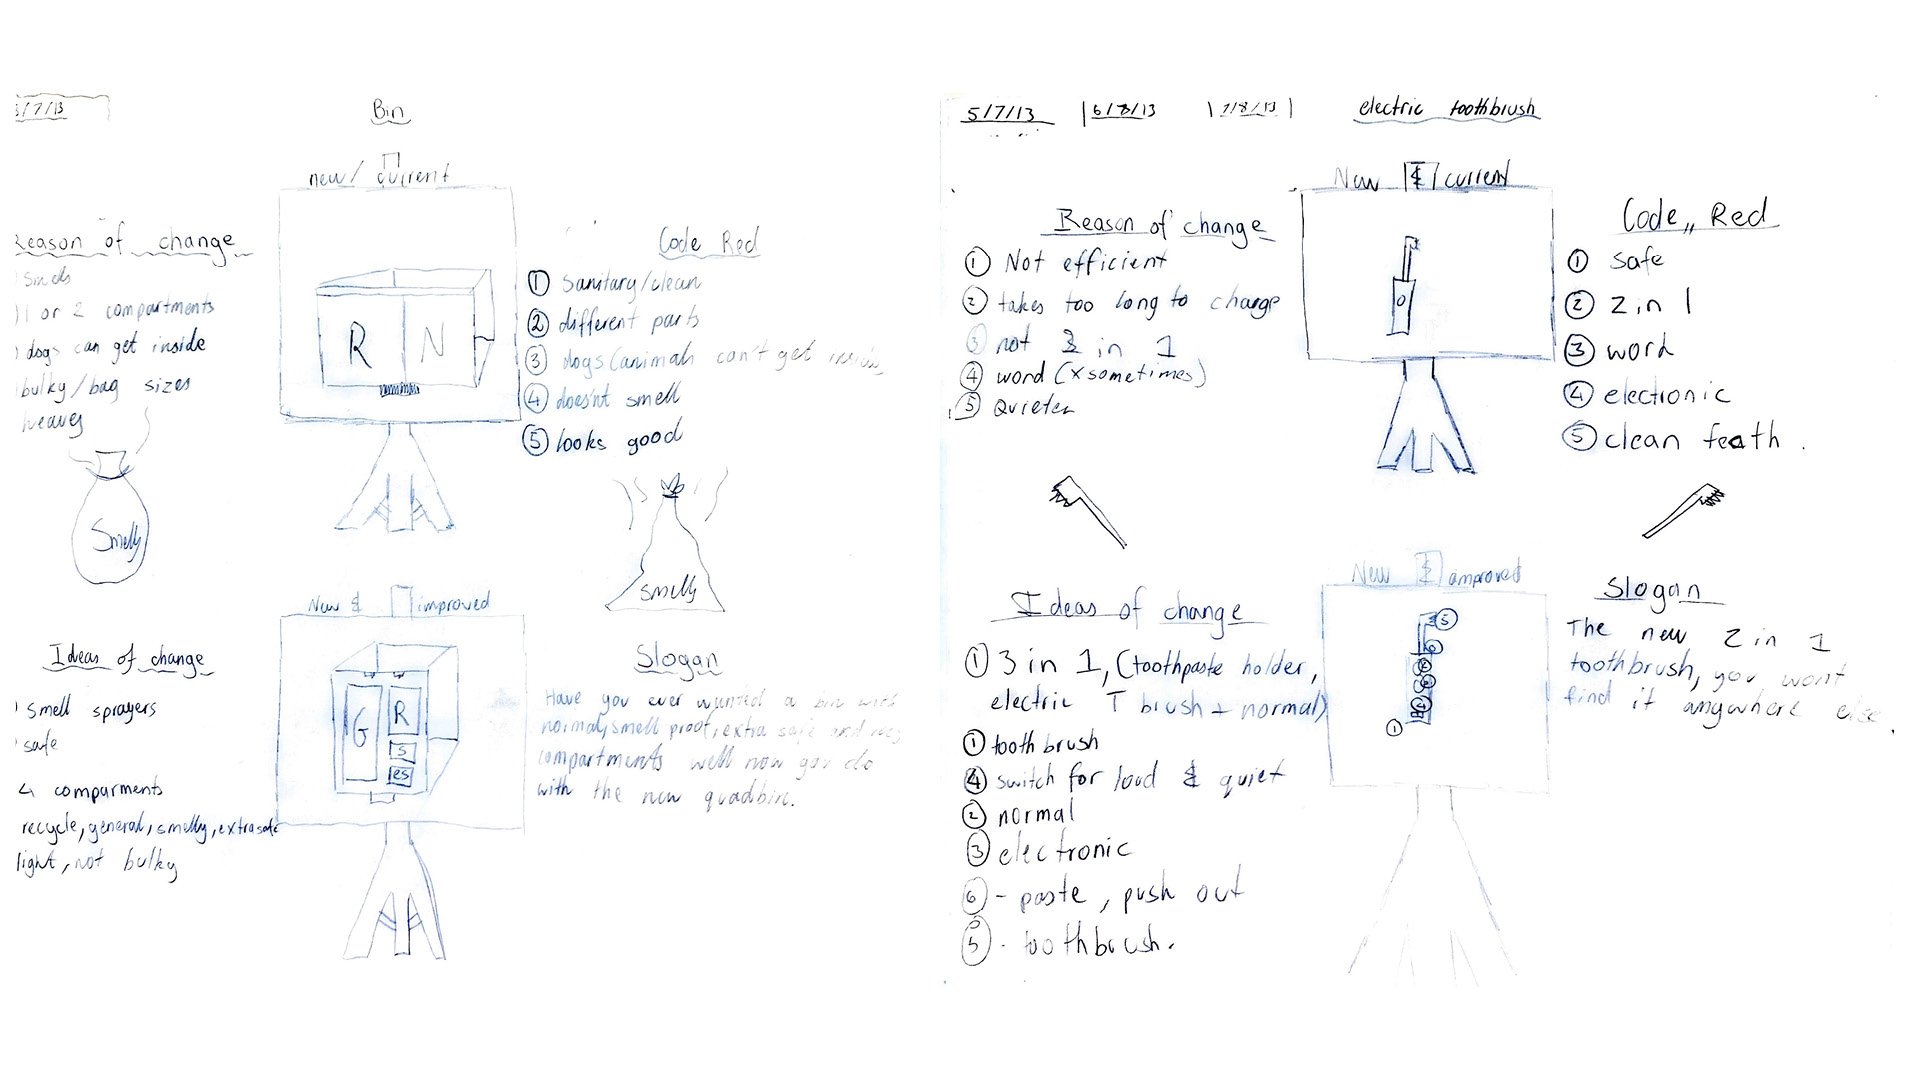 /7/13
Bin
new/ current
Reason of change
Smells
1 or 2 compartments
dogs can get inside
bulky/bag sizes
heavey
Smelly
R N
Code Red
① Sanitary/clean
② different parts
③ dogs/animals can't get inside
④ does'nt smell
⑤ looks good
smelly
New & improved
Ideas of change
smell sprayers
safe
4 comparments
recycle, general, smelly, extra safe
light, not bulky
G R
S
es
Slogan
Have you ever wanted a bin with
normal, smell proof, extra safe and
compartments well now you do
with the new quadbin.
5/7/13 |6/8/13 |7/8/13|
electric toothbrush
New & /current
Reason of change
① Not efficient
② takes too long to charge
③ not 2 in 1
④ word (x sometimes)
⑤ Quieter
Code Red
① safe
② 2 in 1
③ word
④ electronic
⑤ clean teath.
New & improved
Ideas of change
① 3 in 1, (toothpaste holder,
electric T brush + normal)
① tooth brush
④ switch for loud & quiet
② normal
③ electronic
⑥ - paste, push out
⑤ - toothbrush.
5
1
Slogan
The new 2 in 1
toothbrush, you wont
find it anywhere else